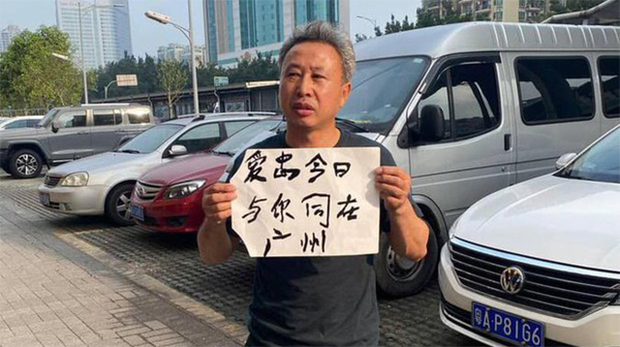 爱岛今日
与你同在
广州
粤A·P81G6